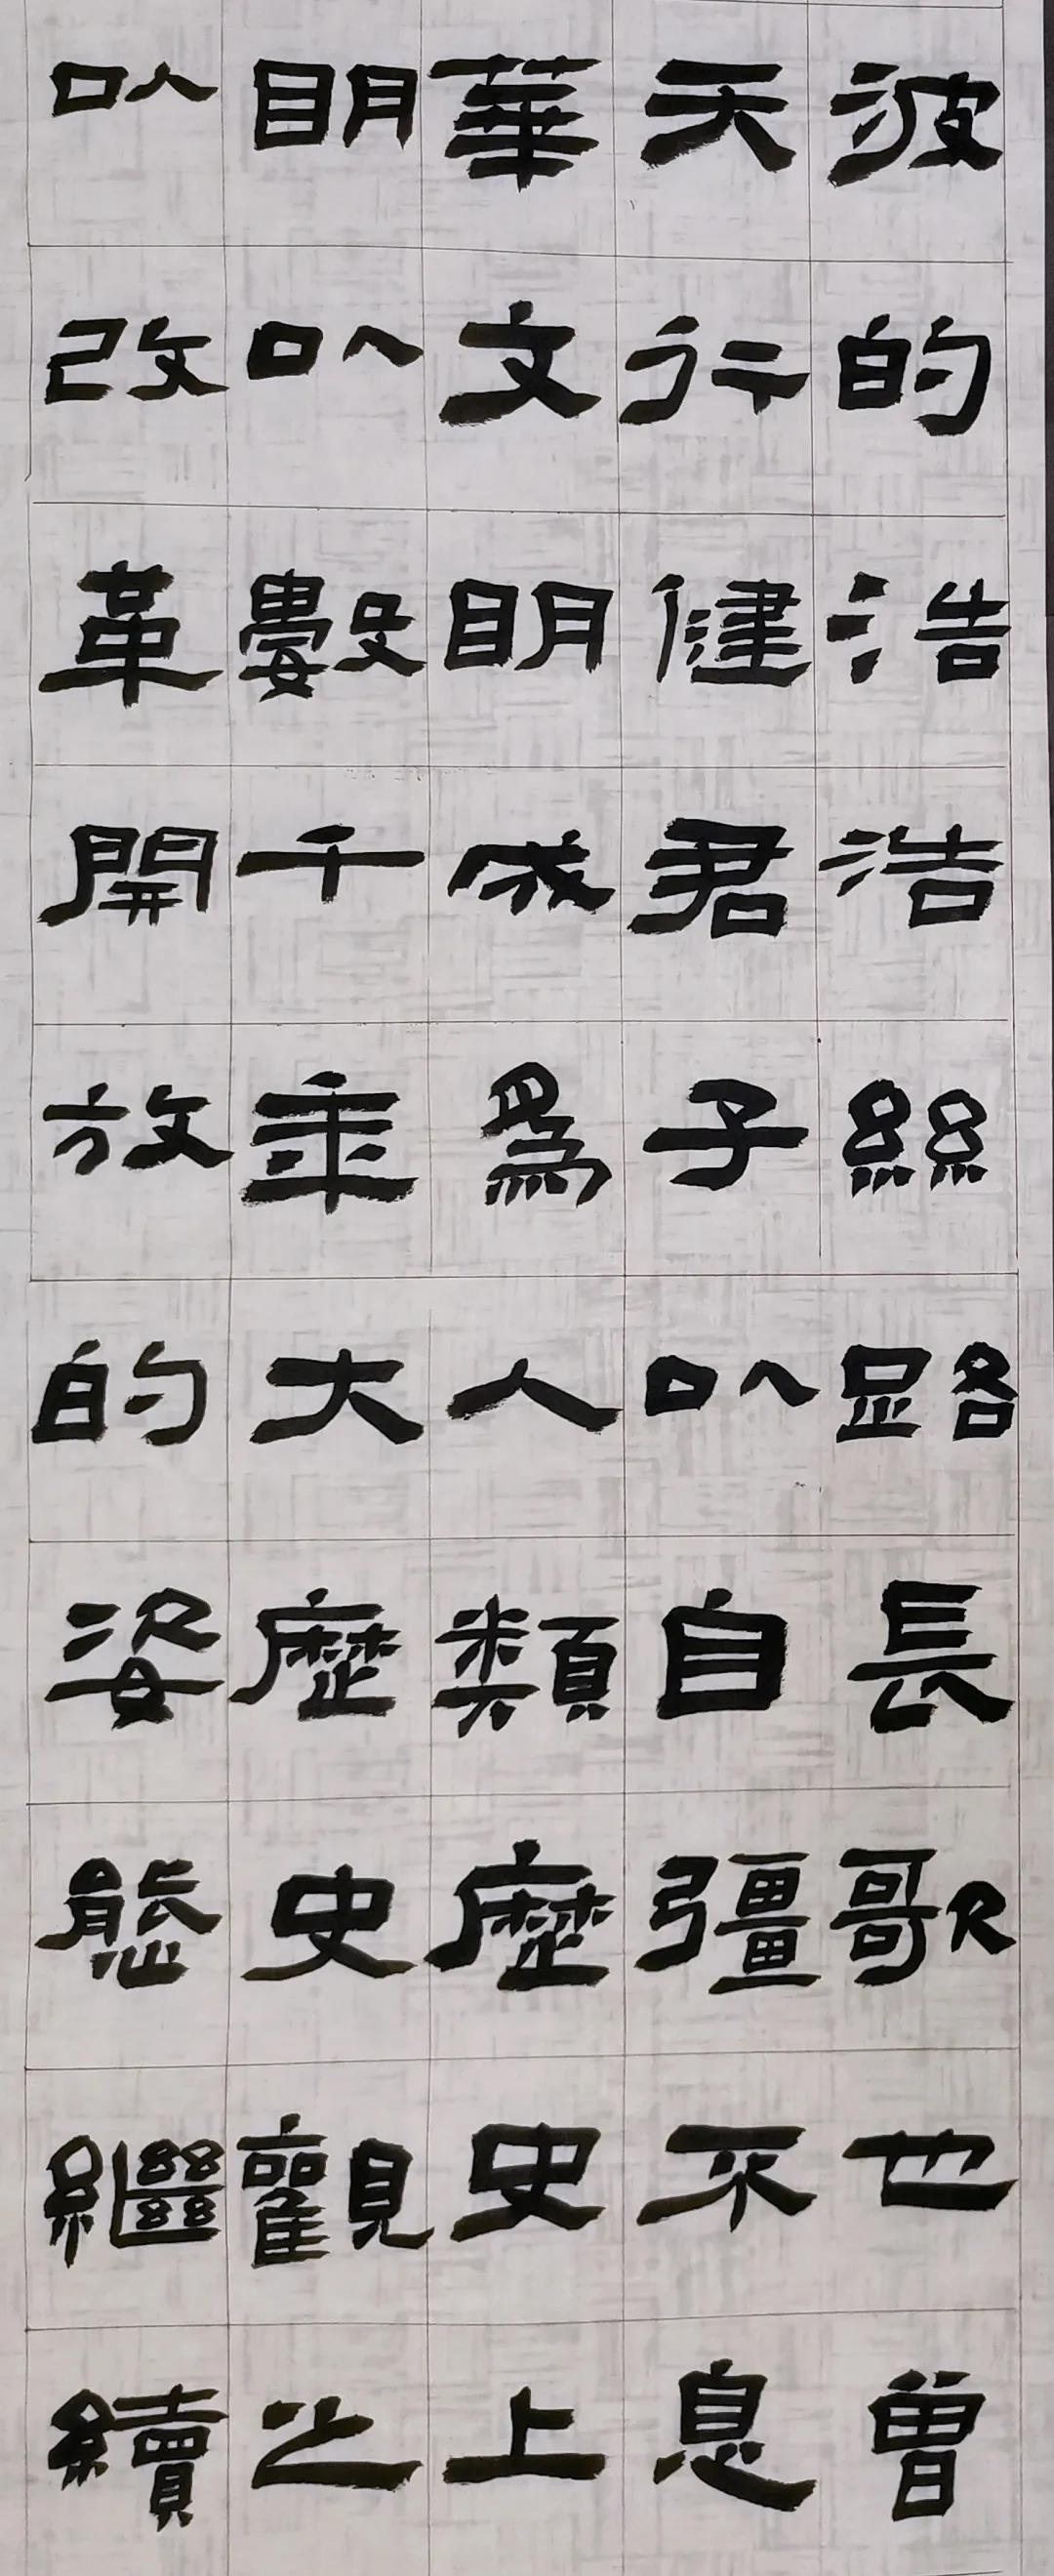 波的浩浩絲路長歌也曾
天行健君子以自彊不息
華文明成為人類歷史上
明以數千秊大歷史觀之
以改革開放的姿態繼續